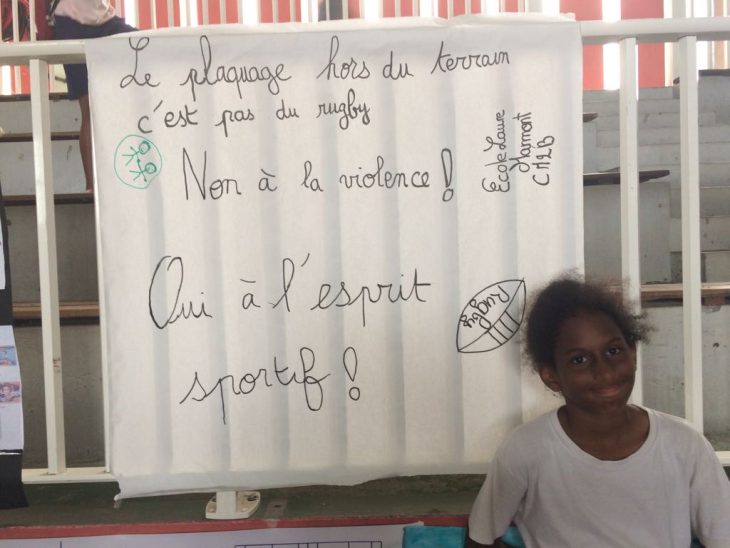 Le plaquage hors du terrain
c'est pas du rugby
Non à la violence !
Oui à l'esprit
sportif !
Ecole Laure
Marmont
CM2B
Rugby